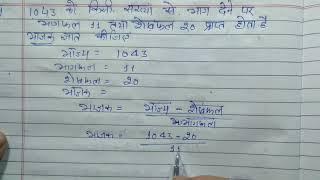 1043 को किसी संख्या से भाग देने पर
भागफल 11 तथा शेषफल 20 प्राप्त होता है
भाजक ज्ञात कीजिए
भाज्य = 1043
भागफल = 11
शेषफल = 20
भाजक =
भाजक = भाज्य - शेषफल
भागफल
भाजक = 1043 - 20
11